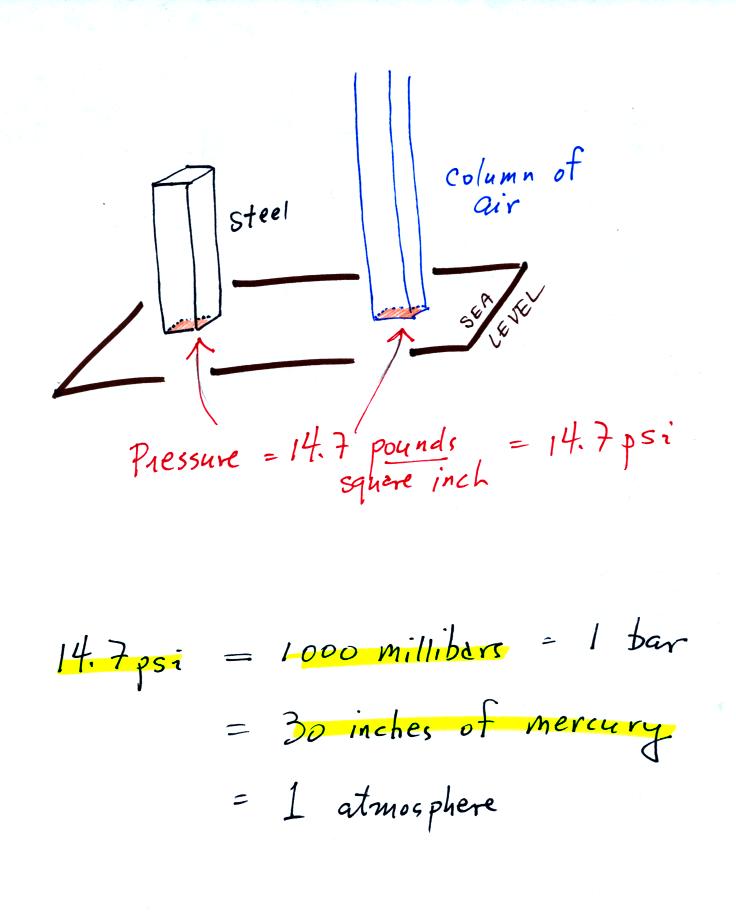 steel
column of
air
SEA
LEVEL
Pressure = 14.7 pounds = 14.7 psi
square inch
14.7 psi = 1000 millibars = 1 bar
= 30 inches of mercury
= 1 atmosphere